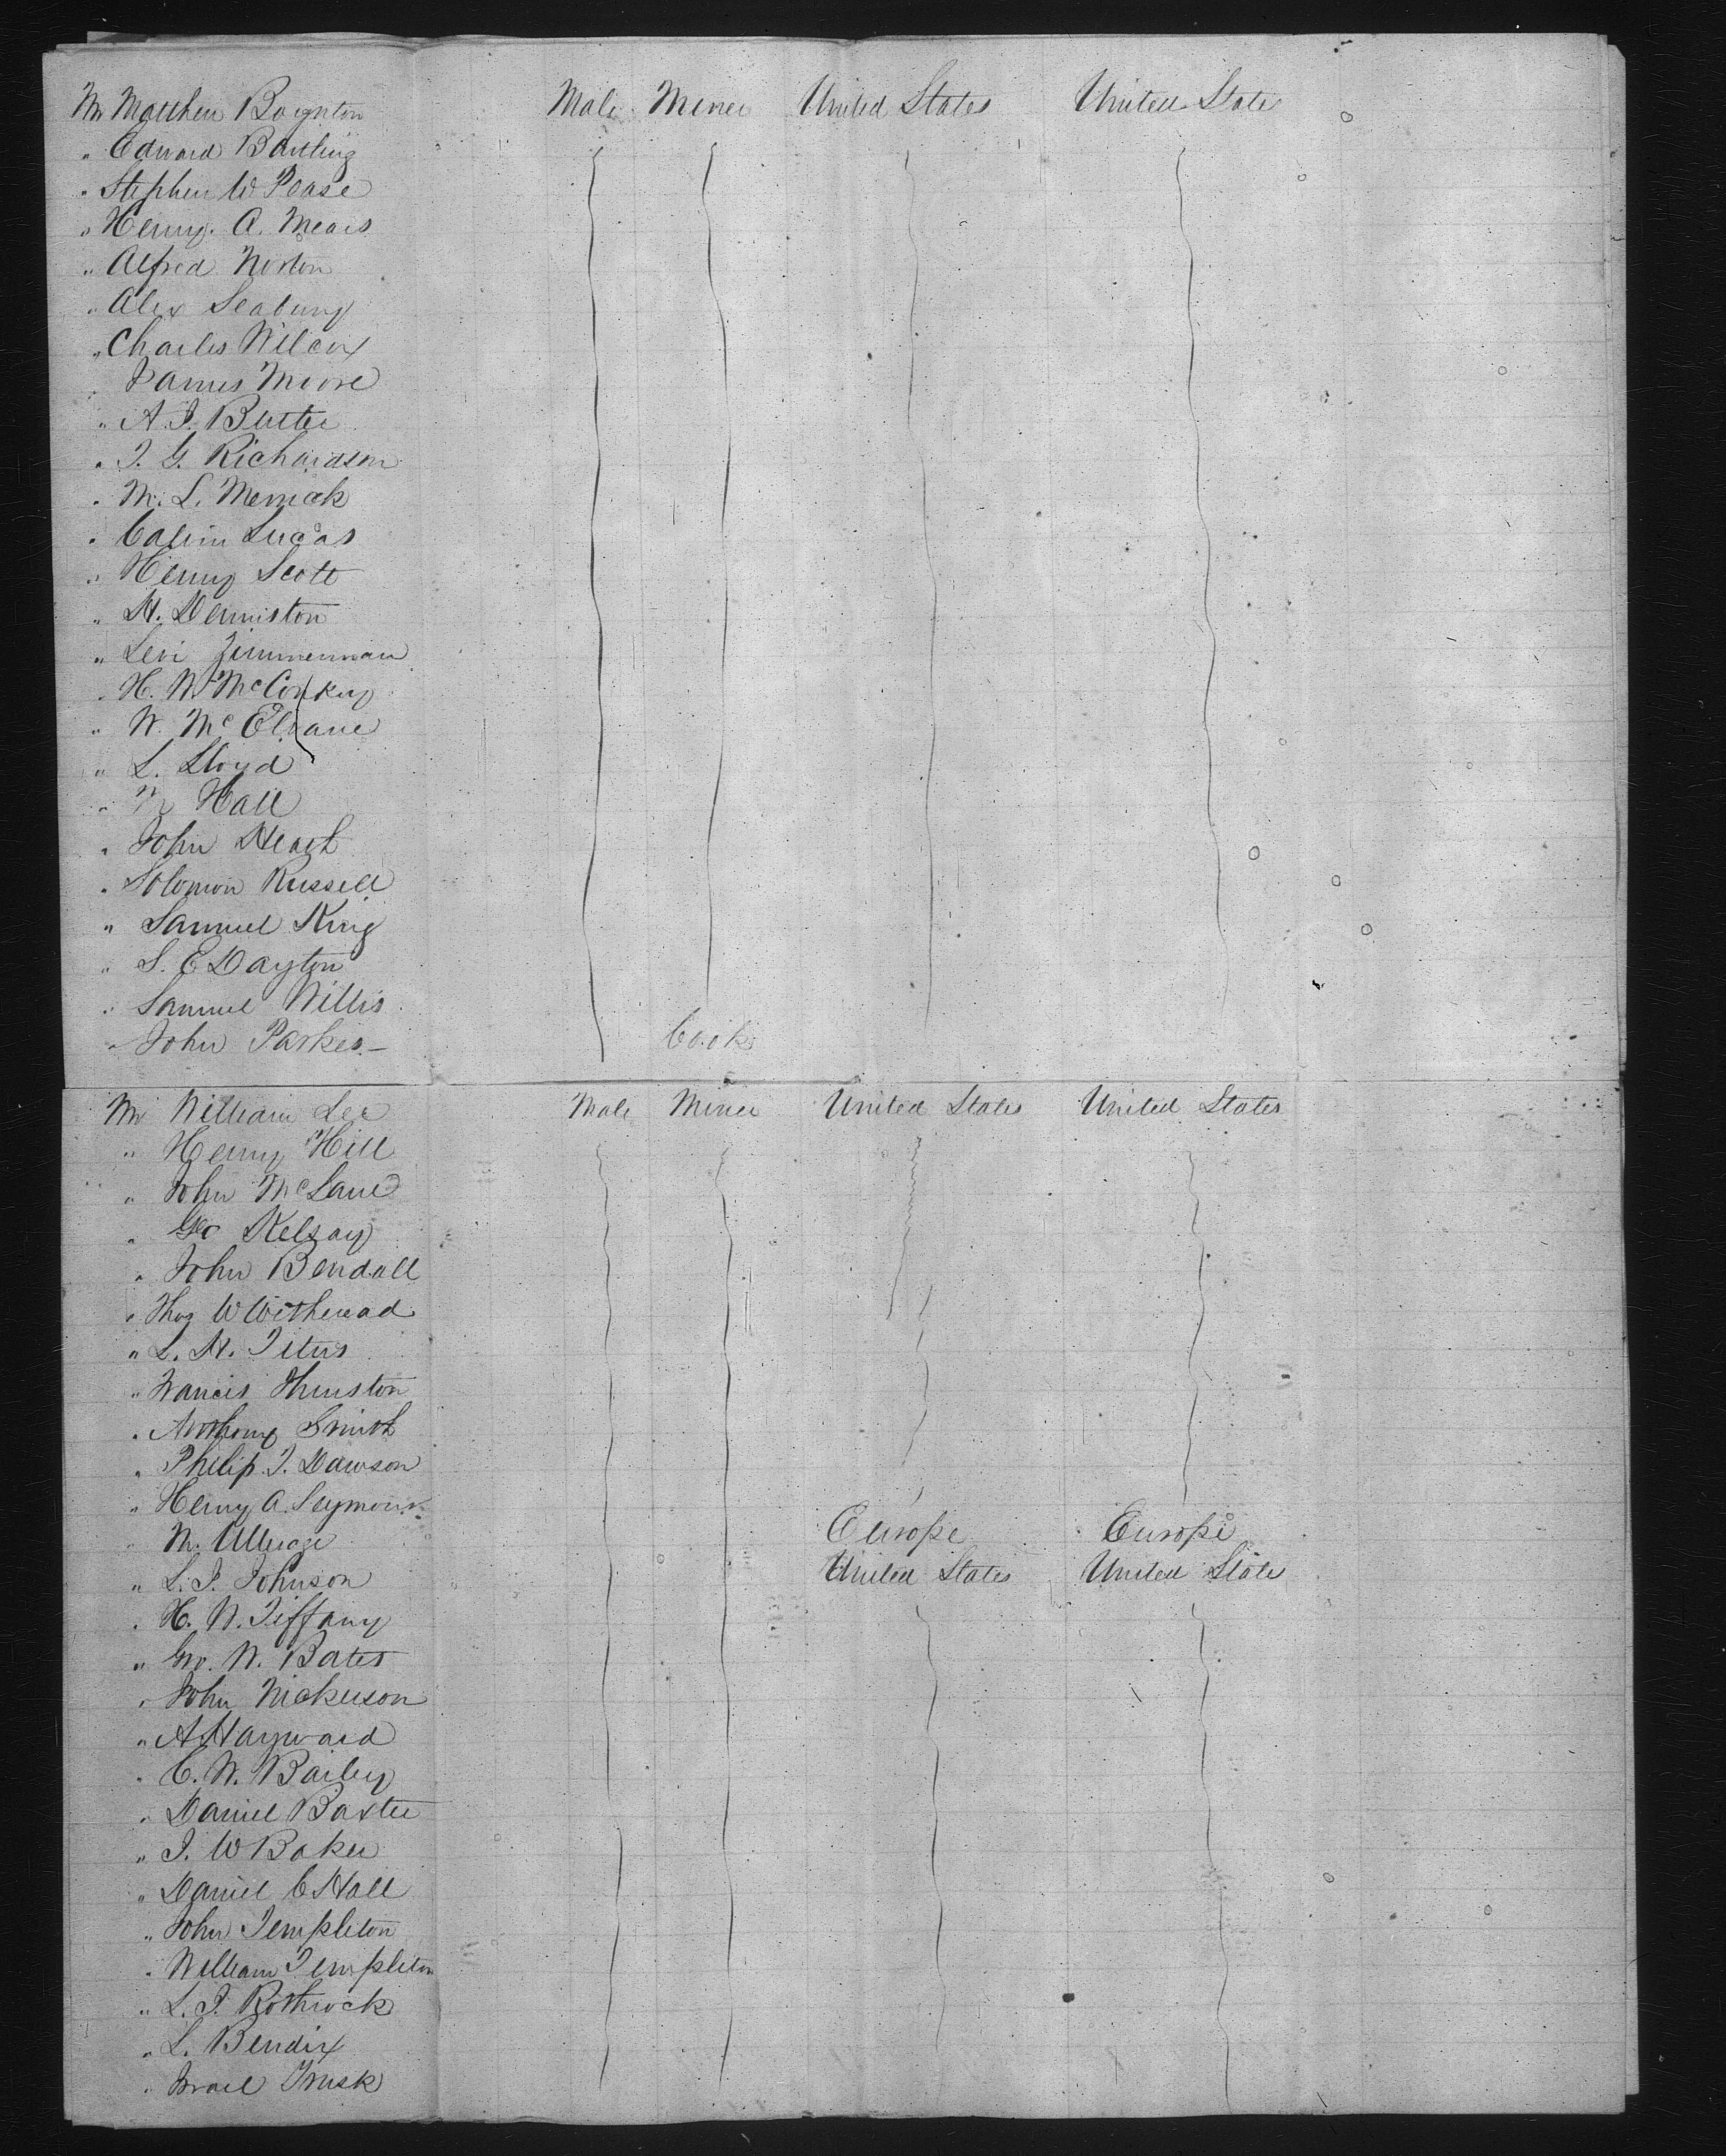 Mr Matthew Boynton Male Miner United States United State
" Edward Bartling
" Stephen W Pease
" Henry. A. Mears
" Alfred Norton
" Alex Seabury
" Charles Wilcox
" James Moore
" A. J.
" J. G. Richardson
" M. L. Merrick
" Calvin Lucas
" Henry Scott
" H. Denniston
" Levi Zimmerman
" H. M McConkey
" W. Mc
" L. Lloyd
" Hall
" John Heach
" Solomon Russell
" Samuel King
" S. E Dayton
" Samuel Willis
" John Parker Cook
Mr William Lee Male Miner United States United States
" Henry Hill
" John McLane
" Geo Kelsay
" John Bendall
" Thos W Witheread
" L. H. Titus
" Francis Thurston
" Anthony Smith
" Philip. J. Dawson
" Henry A. Seymour
" M. Europe Europe
" L. J. Johnson United States United State
" H. N. Tiffany
" Geo. W. Bates
" John Nickerson
" A Hayward
" C. W. Bailey
" Daniel Baxter
" J. W Baker
" Daniel C Hall
" John Templeton
" William Templeton
" L. J. Rothrock
" L. Bendix
" Israel Trusk